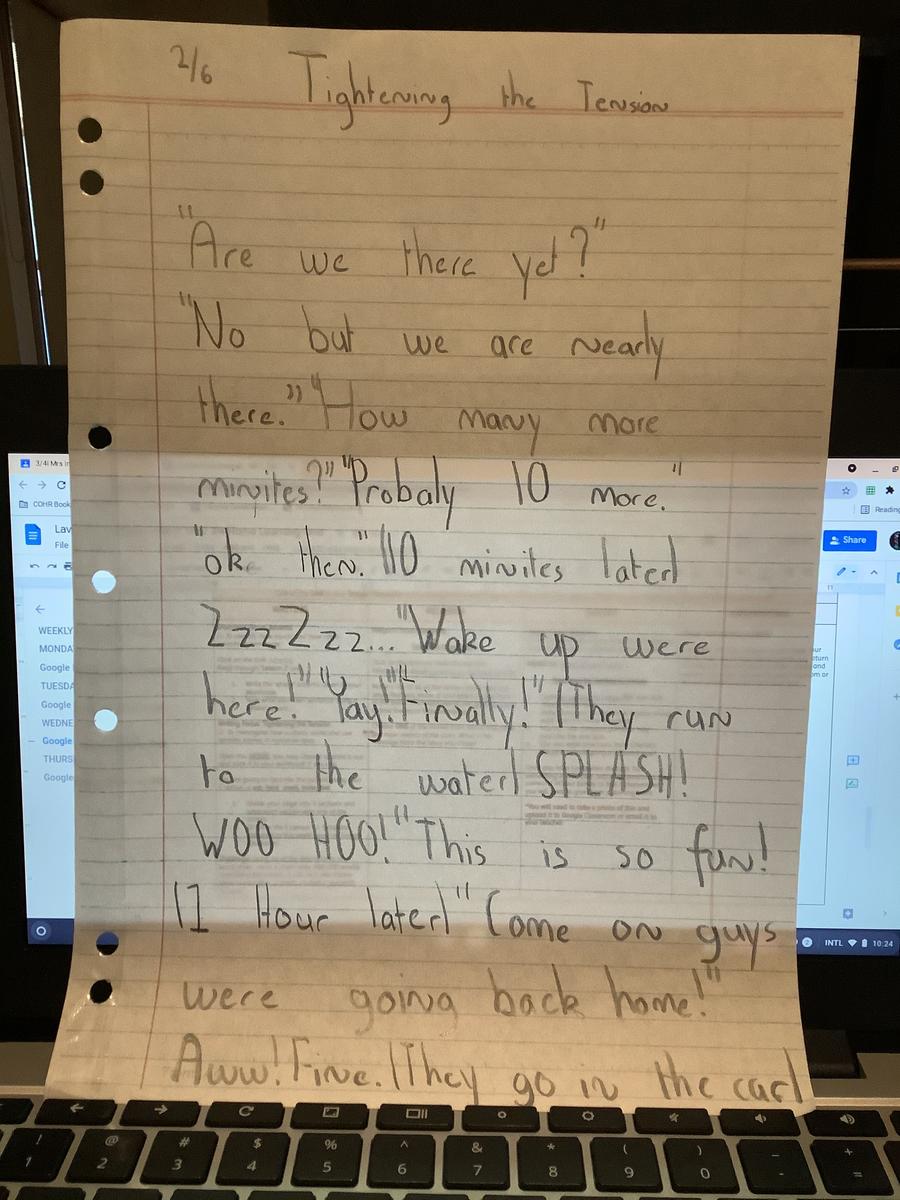 2/6 Tightening the Tension
"Are we there yet?"
"No but we are nearly
there." "How many more
minites?" "Probaly 10 more."
"ok then." |10 minites later|
ZzzZzz... "Wake up were
here!" "Yay!" "Finally!" |They run
to the water| SPLASH!
WOO HOO!" This is so fun!
|1 Hour later| "Come on guys
were going back home!"
Aww! Fine. |They go in the car|
3/4i Mrs
COHR Book
Reading
Lav
File
Share
WEEKLY
MONDA
Google
TUESDA
Google
WEDNE
Google
THURS
Google
INTL 10:24
! 1
@ 2
# 3
$ 4
% 5
^ 6
& 7
* 8
( 9
) 0
_ -
+ =